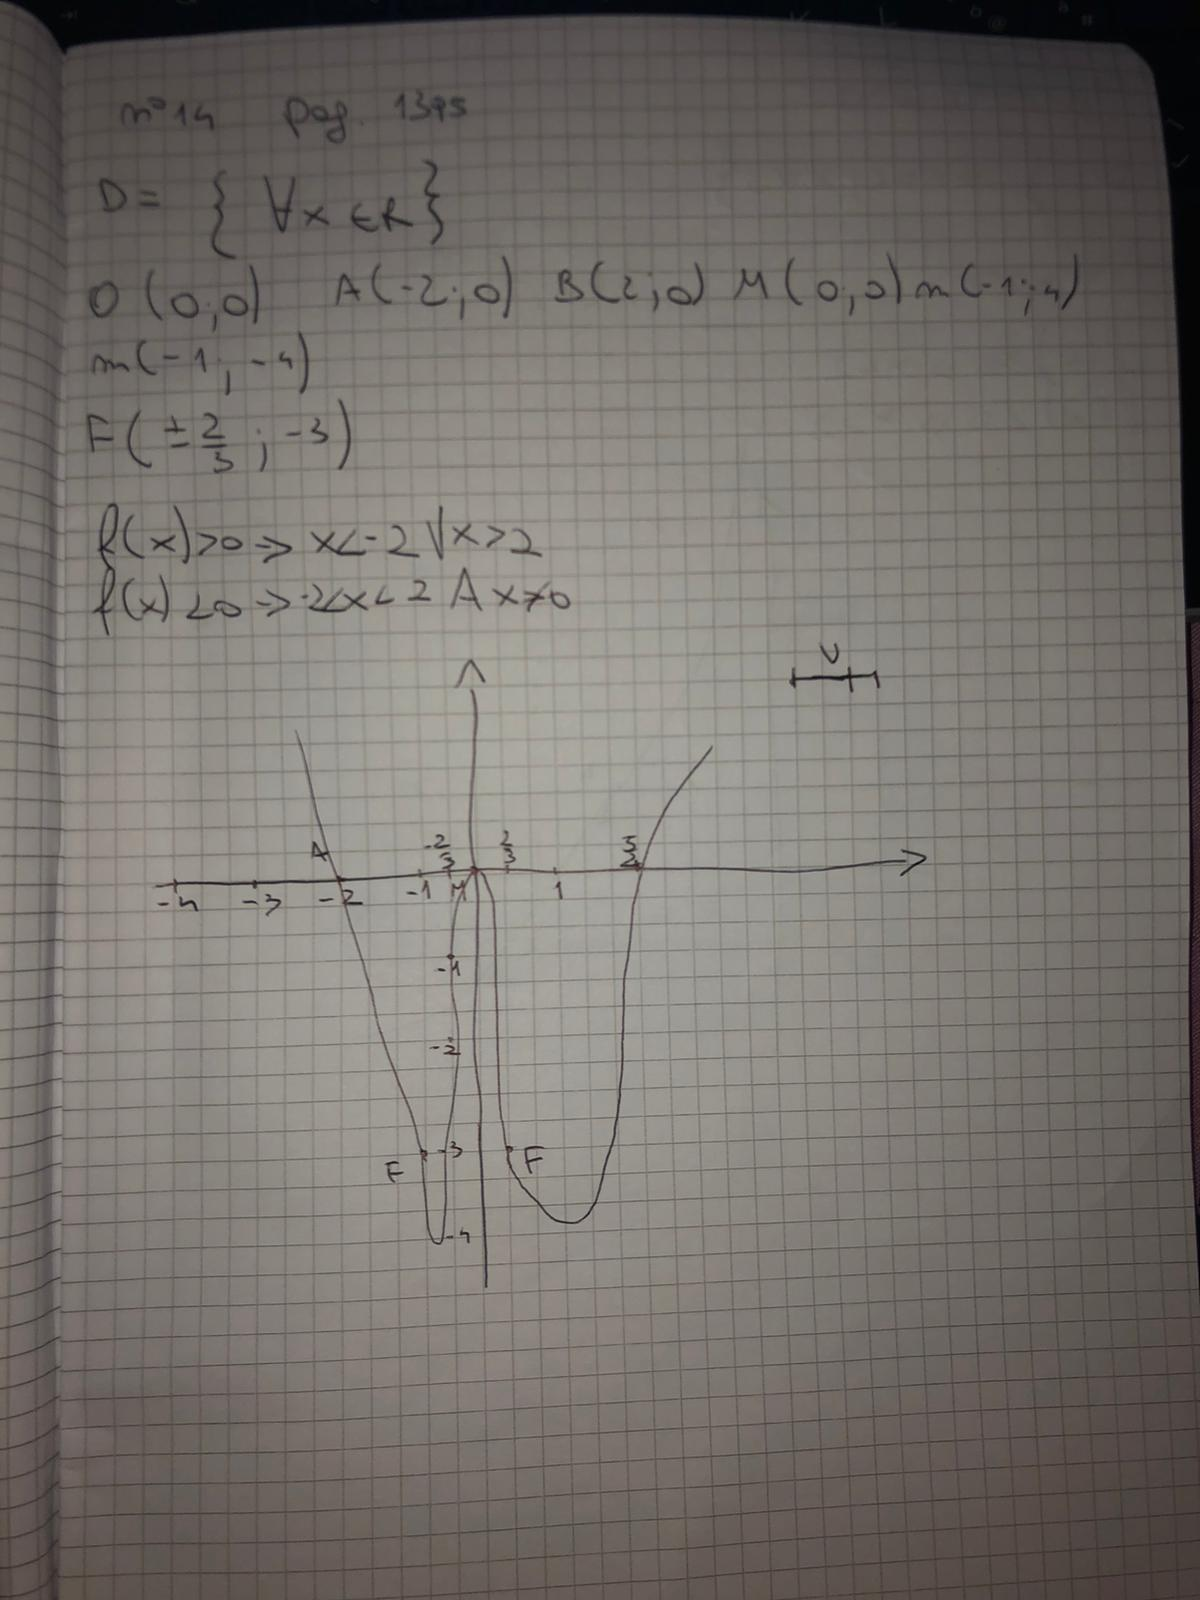 n° 14 pag. 1395
D = { ∀x ∈ R }
O (0;0) A(-2;0) B(2;0) M(0;0) m(-1;4)
m(-1;-4)
F(±2/3; -3)
f(x)>0 => x<-2 V x>2
f(x)<0 => -2<x<2 Λ x≠0
U
A -2/3 2/3
-4 -3 -2 -1 M 1
-1
-2
F -3 F
-4